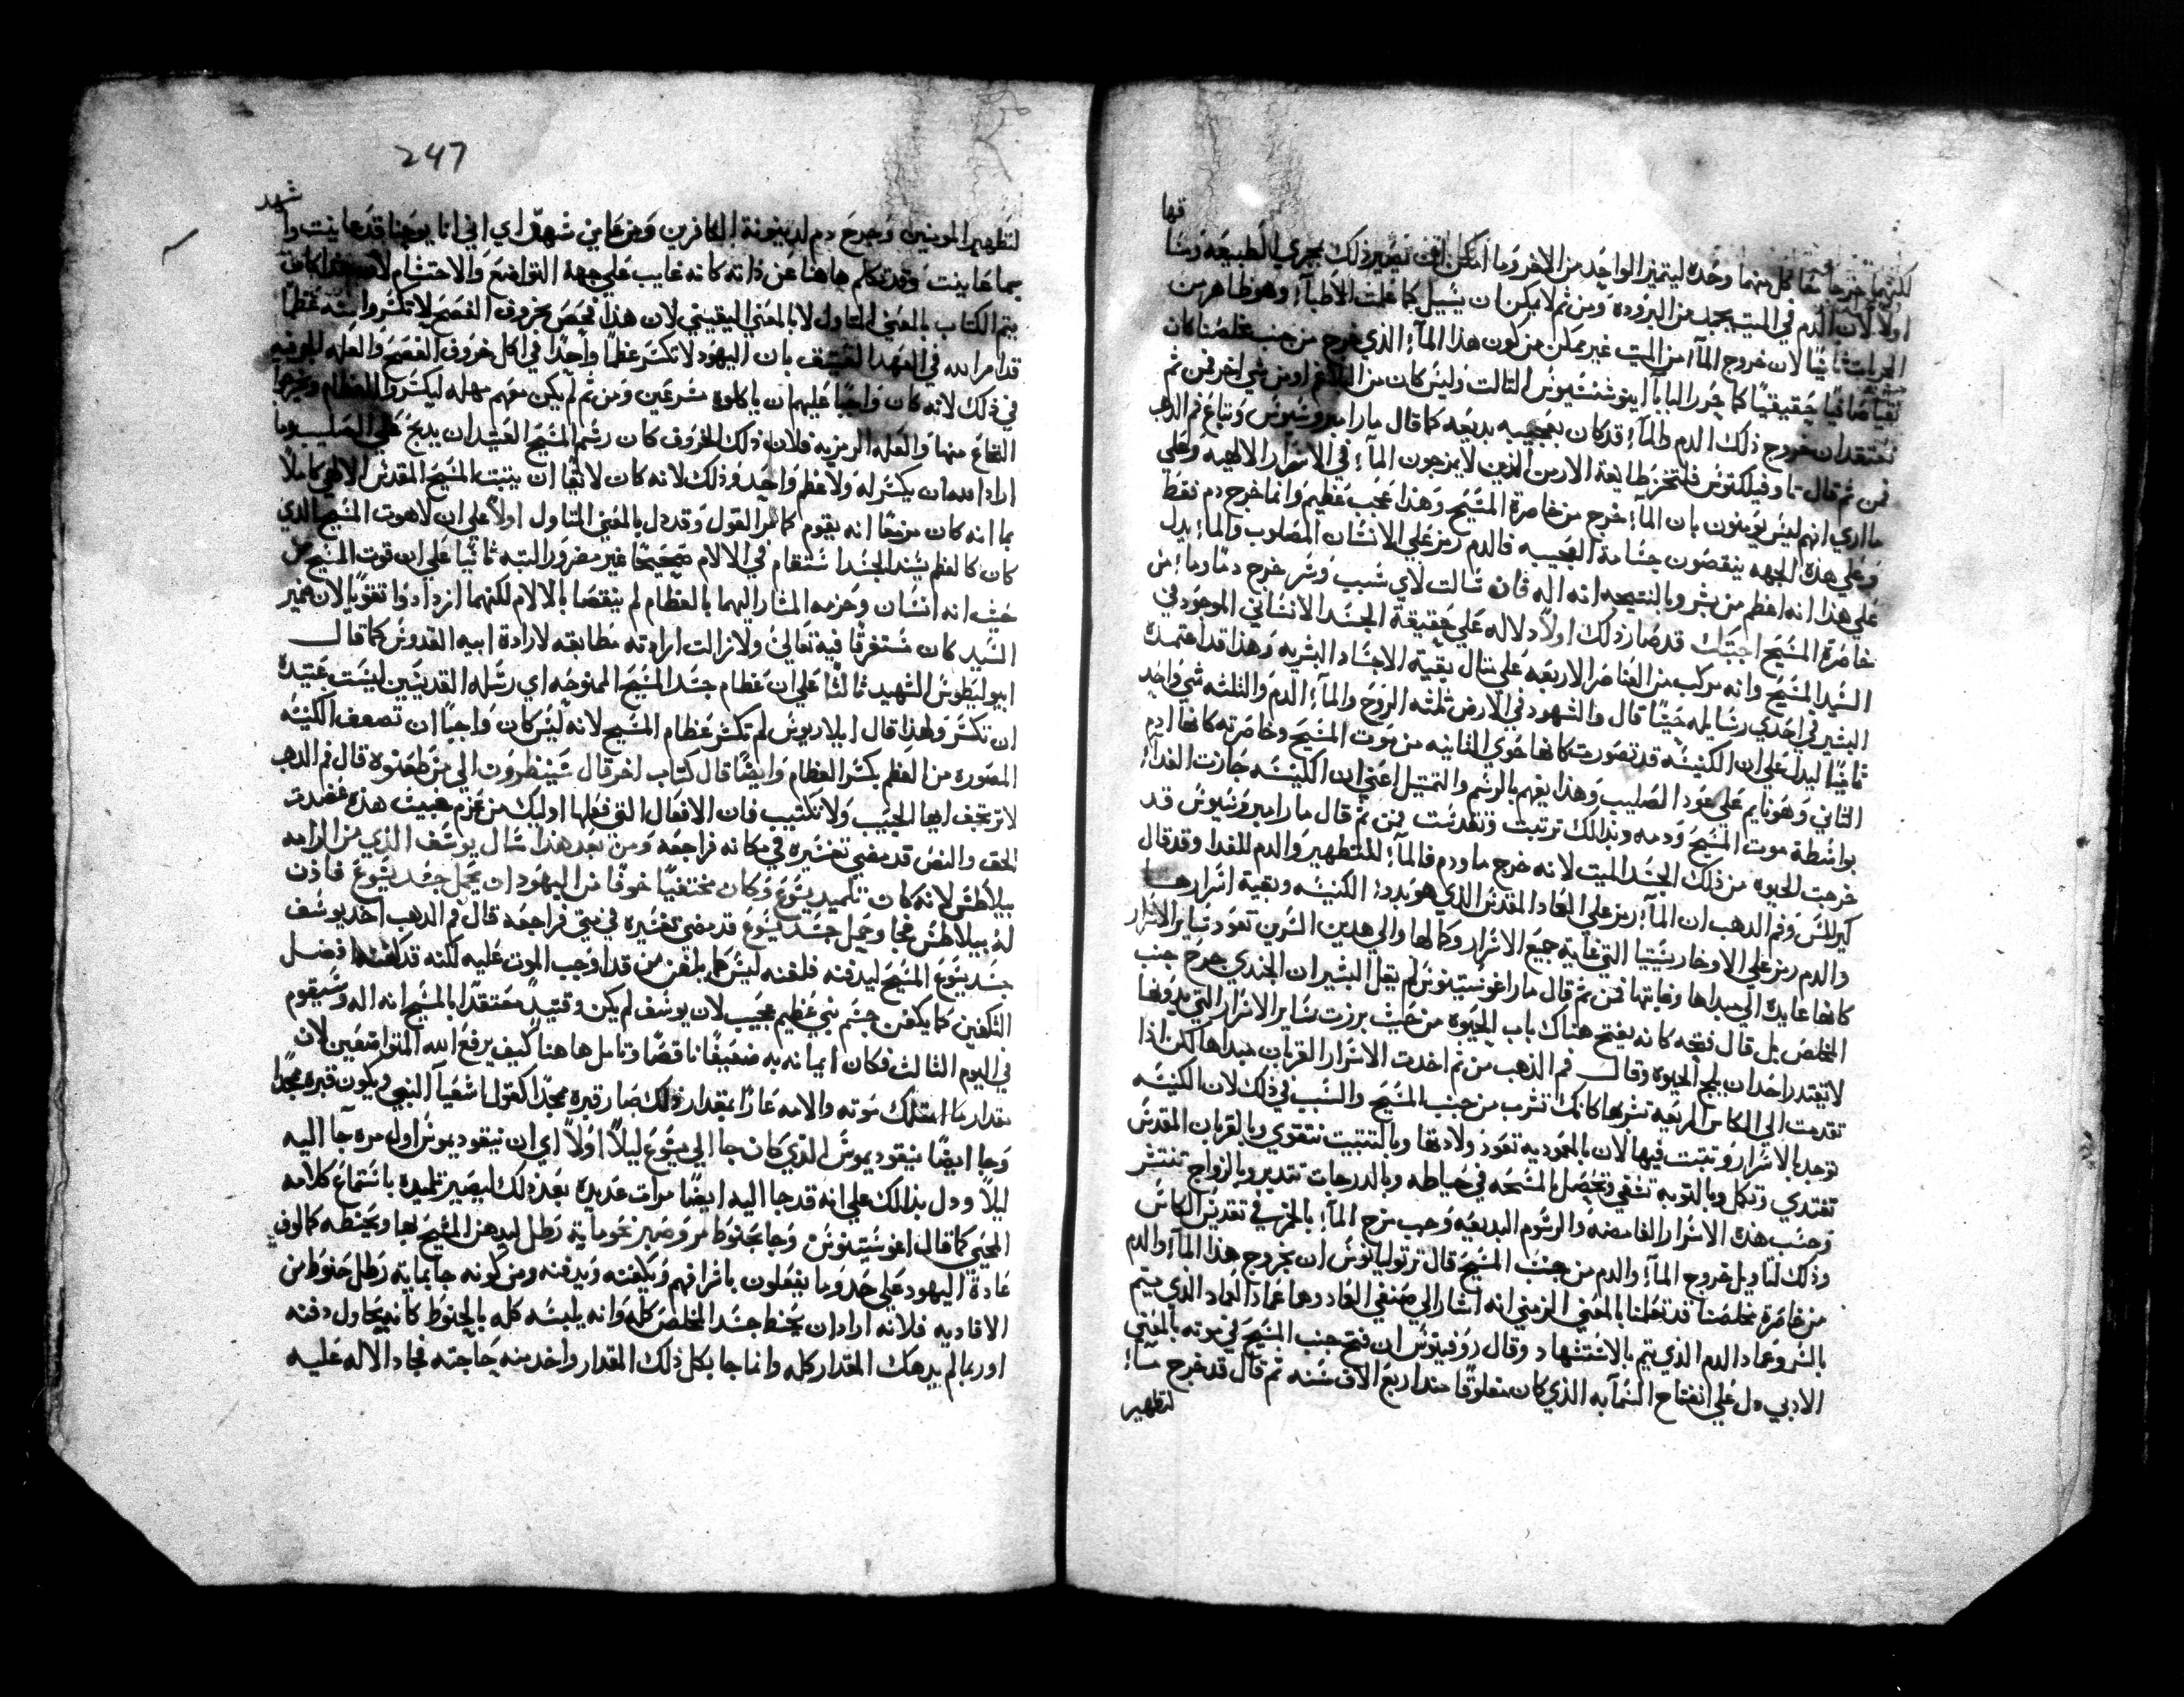 لكنهما خرجا معًا كل منهما وحده ليتميز الواحد من الاخر وما امكن ان يصير ذلك بمجري الطبيعه
قها
اولاً لان الدم في الميت يجمد من البروده ومن ثم لا يمكن ان يسيل كما علمت الاطبآء وهو ظاهر من
الجراب ثانيًا لان خروج المآء من الميت غير ممكن من كون هذا المآء الذي خرج من جنب مخلصنا كان
نقيًا صافيًا حقيقيًا كما حرر البابا اينوشنسيوس التالت وليس كان من البلغم او من شي اخر فمن ثم
نعتقد ان خروج ذلك الدم والمآء قد كان بعجيبه بديعه كما قال مار امبروسيوس وتباع فم الدهب
فمن ثم قال تاوفيلكتوس فلتخز طايفة الارمن الذين لا يمزجون المآء في الاسرار الالهيه وعلي
ما اري انهم ليس يومنون بان المآء خرج من خاصرة المسيح وهذا عجب عظيم وانما خرج دم فقط
وعلي هذه الجهه ينقصون جسامة العجيبه فالدم رمز علي الانسان المصلوب والمآء يدل
علي هذا انه اعظم من بشر وبالنتيجه انه اله فان سالت لاي سبب وسر خرج دمًا ومآء من
خاصرة المسيح اجبتك قد صار ذلك اولاً دلاله علي حقيقة الجسد الانساني الموجود في
السيد المسيح وانه مركب من العناصر الاربعه علي مثال بقية الاجساد البشريه وهذا قد اعتمده
البشير في احدي رسايله حيثما قال والشهود في الارض ثلثه الروح والمآء الدم والثلثه شي واحد
ثانيًا ليدل علي ان الكنيسه قد تصورت كانها حوي الثانيه من موت المسيح وخاصرته كانها ادم
الثاني وهو نايم علي عود الصليب وهذا يفهم بالرسم والتمثيل اعني ان الكنيسه حازت الفداء
بواسطة موت المسيح ودمه وبذلك ترتبت وتقدست فمن ثم قال مار امبروسيوس قد
خرجت الحيوه من ذلك الجسد الميت لانه خرج ما ودم فالمآء للتطهير والدم للفدا وقد قال
كيرللس وفم الدهب ان المآء رمز علي العماد المقدس الذي هو بدو الكنيسه وبقية اسرارها
والدم رمز علي الاوخاريستيا التي غاية جميع الاسرار وكمالها والي هدين السرين تعود ساير الاسرار
كانها عايده الي مبداها ونهايتها فمن ثم قال مار اغوستينوس لم يقل البشير ان الجندي جرح جنب
المخلص بل قال فتحه كانه يفتح هناك باب الحيوه من حيث برزت ساير الاسرار التي بدونها
لا يقتدر احد ان يلج الحيوه وقال فم الذهب من ثم اخدت الاسرار القربان مبداها لكن اذا
تقدمت الي الكاس المريعه تشربها كانك تشرب من جنب المسيح والسبب في ذلك لان الكنيسه
توجد بالاسرار وتثبت فيها لان بالمعموديه تعود ولادتها وبالتتبيت تتقوي وبالقربان المقدس
تغتدي وتكمل وبالتوبه تشفي وتحصل المسحه في حياطه وبالدرجات تتدبر وبالزواج تنتشر
وحسب هذه الاسرار الغامضه والرسوم البديعه وجب مزج المآء بالخمر في تقديس الكاس
وذلك لتاويل خروج المآء والدم من جنب المسيح قال ترتوليانوس ان بخروج هذا المآء والدم
من خاصرة مخلصنا قد تعلمنا بالمعني الرمزي انه اشار الي صنفي العماد وهما عماد العماد الذي يتم
بالسر وعماد الدم الذي يتم بالاستشهاد وقال روفينوس ان فتح جنب المسيح في موته بالمعني
الادبي دل علي انفتاح السمآ به الذي كان مغلوقًا منذ اربع الاف سنه ثم قال قد خرج مآء
لتطهير
247
لتطهير المومنين وخرج دم لدينونة الكافرين ومن عاين شهد اي اني انا يوحنا قد عاينت وا
شهد
بما عاينت وقد تكلم هاهنا عن ذاته كانه غايب علي جهة التواضع والاحتشام
يتم الكتاب بالمعني المتاول لا بالمعني اليقيني لان هذا مختص بخروف الفصح لا تكسروا منه عظمًا
قد امر الله في العهد العتيق بان اليهود لا تكسر عظمًا واحدًا في اكل خروف الفصح والعله
في ذلك لانه كان واجبًا عليهم ان ياكلوه مسرعين ومن ثم لم يكن معهم مهله ليكسروا العظام ويخرجوا
النخاع منها والعله الرمزيه فلان ذلك الخروف كان رسم المسيح العتيد ان يدبح علي الصليب وما
اراد الله ان يكسر له ولا عظم واحد وذلك لانه كان لايقًا ان يثبت المسيح المقدس الالهي كاملاً
بما انه كان مزمعًا انه يقوم كما مر القول وقد دل بالمعني المتاول اولاً علي ان لاهوت المسيح الذي
كان كالعظم يسند الجسد استقام في الالام صحيحًا غير مضرور البته ثانيًا علي ان قوت المسيح من
حيث انه انسان وحزمه المشار اليهما بالعظام لم ينقصا بالالام لكنهما ازدادوا تقويًا لان ضمير
السيد كان مستغرقًا فيه تعالي ولا زالت ارادته مطابقه لارادة ابيه القدوس كما قال
ايبوليطوس الشهيد ثالثًا علي ان عظام جسد المسيح الممنوحه اي رسله القديسين ليست عتيدة
ان تكسر ولهذا قال ايلاريوس لم تكسر عظام المسيح لانه ليس كان واجبًا ان تضعف الكنيسه
المصوره من العظم بكسر العظام وايضًا قال كتاب اخر قال سينظرون الي من طعنوه قال فم الدهب
لا ترتجف ايها الحبيب ولا تكتيب فان الافعال التي فعلها اوليك من عزم خبيث هذه عضدت
الحق والنص قد مضي تفسيره في مكانه فراجعه ومن بعد هذا سال يوسف الذي من الرامه
بيلاطس لانه كان تلميد يسوع وكان مختفيًا خوفًا من اليهود ان يحمل جسد يسوع فاذن
له بيلاطس فجا وحمل جسد يسوع قد مضي تفسيره في متي فراجعه قال فم الدهب اخد يوسف
جسد يسوع المسيح ليدفنه فلفنه ليس كما يلفن من قد اوجب الموت عليه لكنه قد كفنه افضل
التكفين كما يكفن جسم نبي عظيم عجيب لان يوسف لم يكن وقتيدٍ معتقدًا بالمسيح انه اله وسيقوم
في اليوم الثالث فكان ايمانه به ضعيفًا ناقصًا وتامل هاهنا كيف يرفع الله المتواضعين لان
مقدار ما امتلك موته والامه عارًا بمقدار ذلك صار قبره مجدًا كقول اشعيآ النبي ويكون قبره مجدًا
وجا ايضًا نيقوديموس الذي كان جا الي يسوع ليلاً اولاً اي ان نيقوديموس اول مره جآ اليه
ليلاً ودل بذلك علي انه قد جا اليه ايضًا مرات عديده بعد ذلك ليصير تلميده باستماع كلامه
المحيي كما قال اغوستينوس وجا بحنوط مر وصبر نحو ماية رطل ليدهن المسيح بها ويحنطه كمالوف
عادة اليهود علي حد وما يفعلون باشرافهم ويكفنه ويدفنه ومن كونه جا بماية رطل حنوط من
الافاديه فلانه اراد ان يحنط جسد المخلص كله وانه يلبسه كله بالحنوط كانه يحاول دفنه
او ربما لم يدهك المقدار كله وانما جا بكل ذلك المقدار واخد منه حاجته فجاد الاله عليه